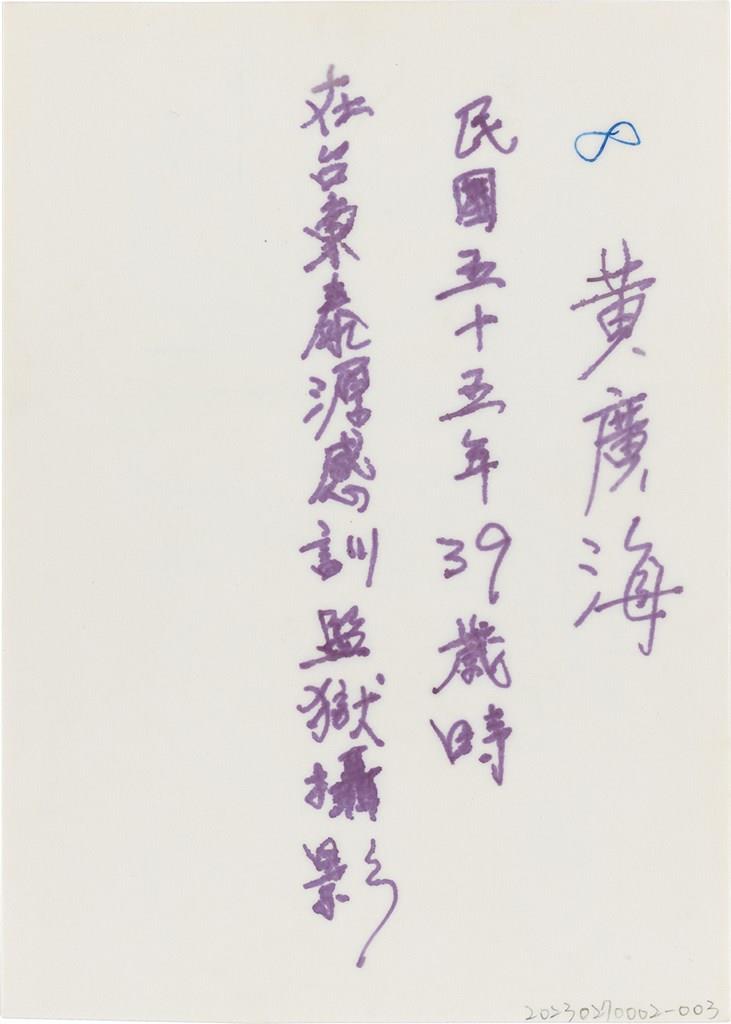 8 黃廣海
民國五十五年39歲時
在台東泰源感訓監獄攝影
20230270002-003